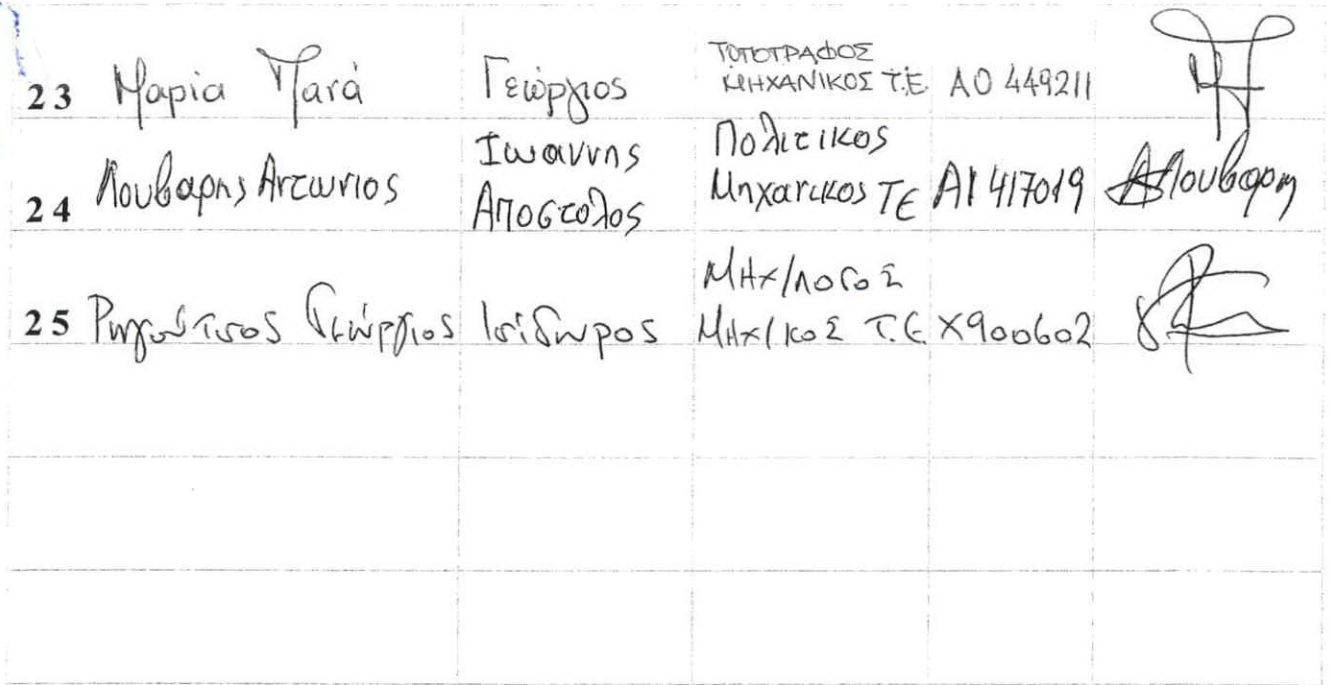 23 Μαρία Γεώργιος ΤΟΠΟΓΡΑΦΟΣ ΜΗΧΑΝΙΚΟΣ Τ.Ε. ΑΟ 449211
24 Λουβαρης Αντωνιος Ιωαννης Αποστολος Πολιτικος Μηχανικος ΤΕ ΑΙ 417019 Λουβαρη
25 Γεώργιος Ισίδωρος ΜΗΧ/ΛΟΓΟΣ ΜΗΧ/ΚΟΣ Τ.Ε. Χ900602